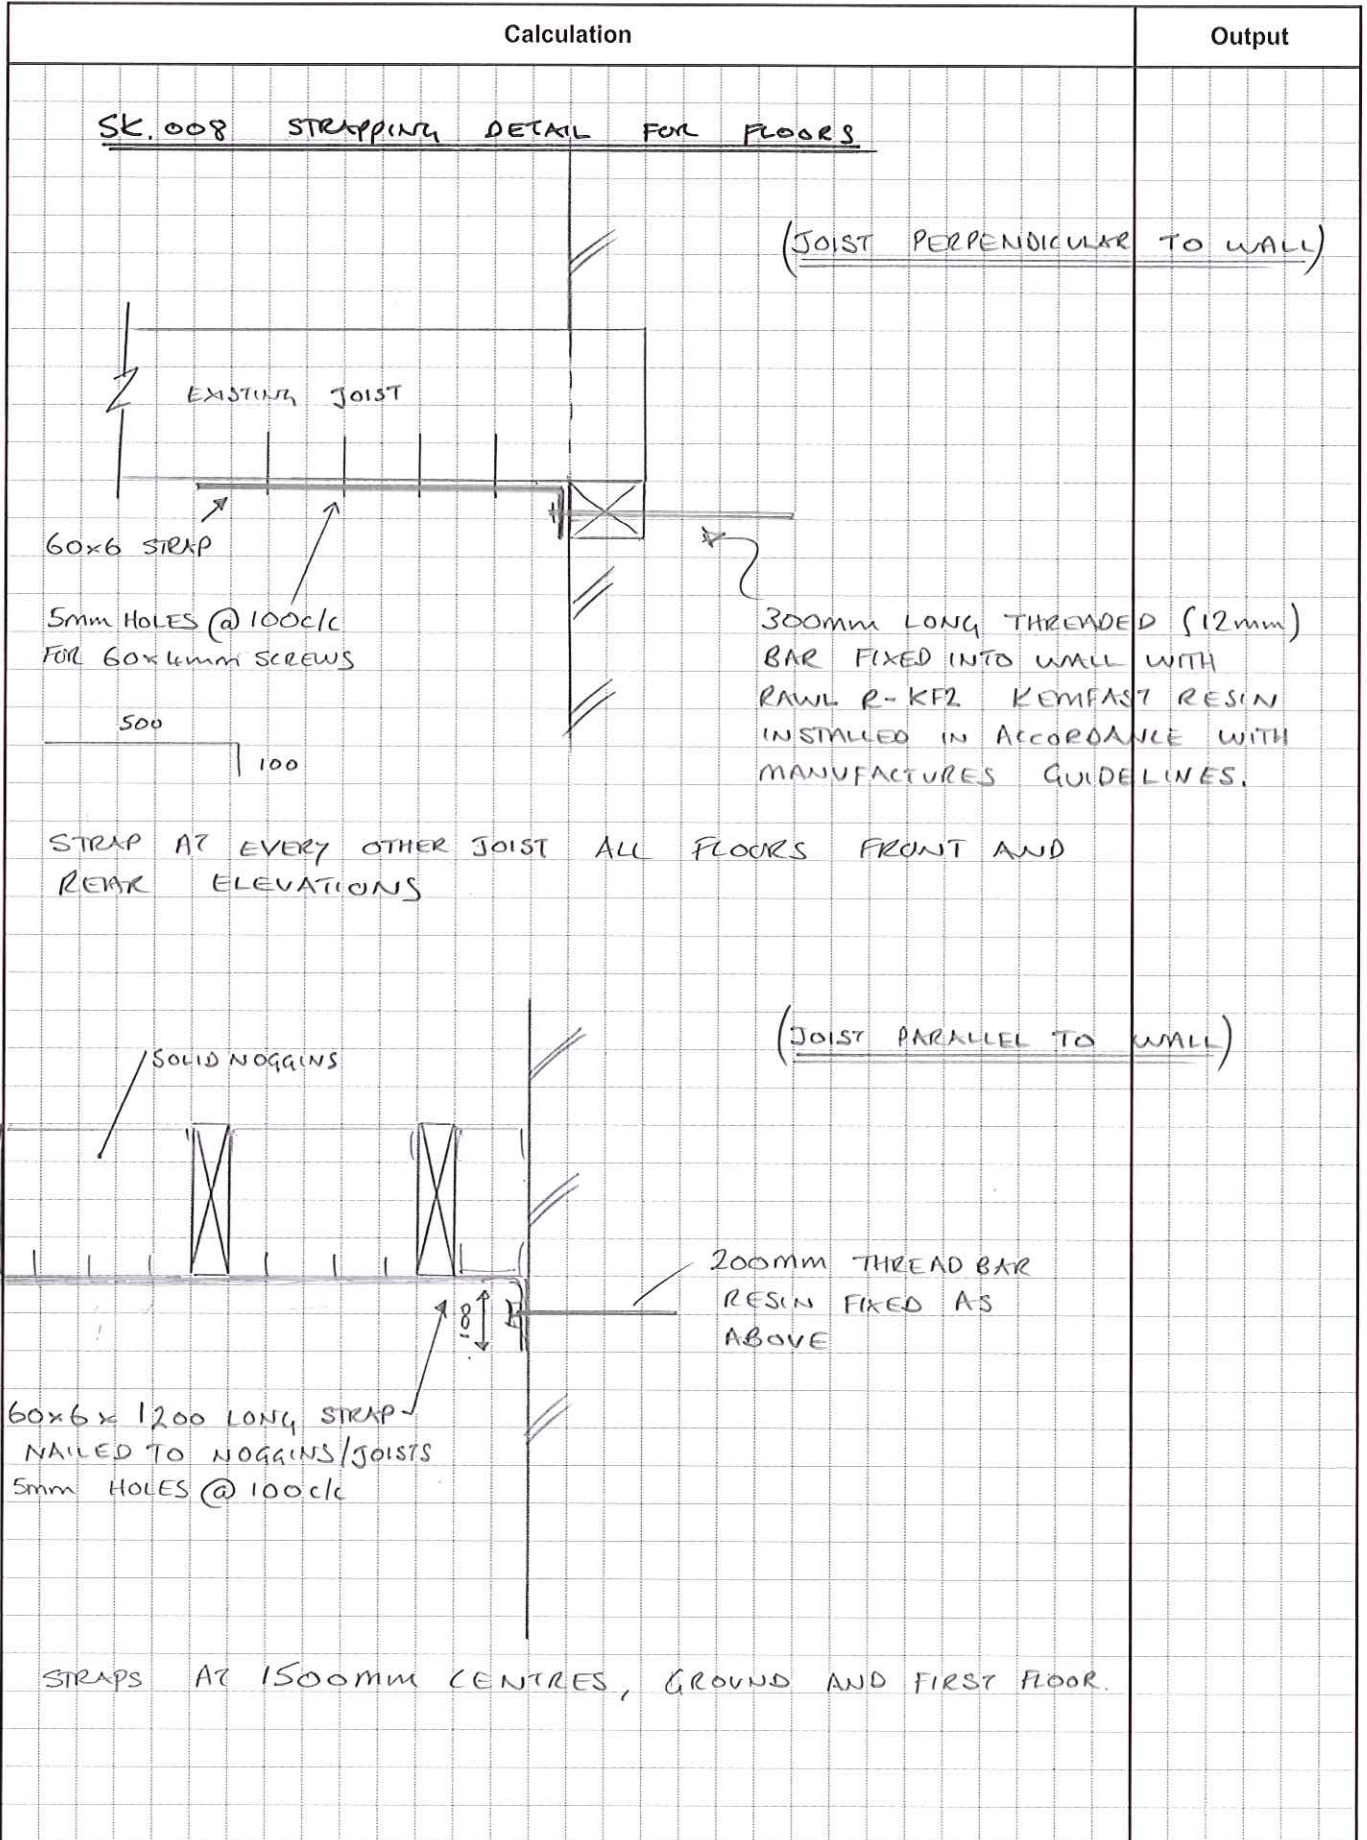 Calculation
Output
SK.008 STRAPPING DETAIL FOR FLOORS
(JOIST PERPENDICULAR TO WALL)
EXISTING JOIST
60x6 STRAP
5mm HOLES @ 100c/c
FOR 60x4mm SCREWS
500
100
300mm LONG THREADED (12mm)
BAR FIXED INTO WALL WITH
RAWL R-KF2 KEMFAST RESIN
INSTALLED IN ACCORDANCE WITH
MANUFACTURES GUIDELINES.
STRAP AT EVERY OTHER JOIST ALL FLOORS FRONT AND
REAR ELEVATIONS
(JOIST PARALLEL TO WALL)
SOLID NOGGINS
200mm THREAD BAR
RESIN FIXED AS
ABOVE
60x6x 1200 LONG STRAP
NAILED TO NOGGINS/JOISTS
5mm HOLES @ 100c/c
STRAPS AT 1500mm CENTRES, GROUND AND FIRST FLOOR.